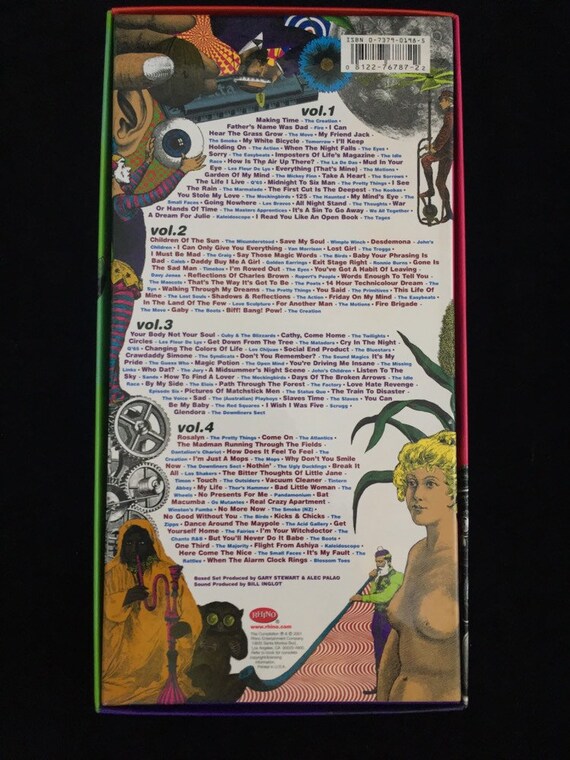 ISBN 0-7379-0198-5
0 8122-76787-2 2
vol.1
Making Time - The Creation •
Father's Name Was Dad - Fire • I Can
Hear The Grass Grow - The Move • My Friend Jack -
The Smoke • My White Bicycle - Tomorrow • I'll Keep
Holding On - The Action • When The Night Falls - The Eyes •
Sorry - The Easybeats • Imposters Of Life's Magazine - The Idle
Race • How Is The Air Up There? - The La De Das • Mud In Your
Eye - Les Fleur De Lys • Everything (That's Mine) - The Motions •
Garden Of My Mind - The Mickey Finn • Take A Heart - The Sorrows •
The Life I Live - Q'65 • Midnight To Six Man - The Pretty Things • I See
The Rain - The Marmalade • The First Cut Is The Deepest - The Koobas •
You Stole My Love - The Mockingbirds • 125 - The Haunted • My Mind's Eye - The
Small Faces • Going Nowhere - Los Bravos • All Night Stand - The Thoughts • War
Or Hands Of Time - The Masters Apprentices • It's A Sin To Go Away - We All Together •
A Dream For Julie - Kaleidoscope • I Read You Like An Open Book - The Tages
vol.2
Children Of The Sun - The Misunderstood • Save My Soul - Wimple Winch • Desdemona - John's
Children • I Can Only Give You Everything - Van Morrison • Lost Girl - The Troggs •
I Must Be Mad - The Craig • Say Those Magic Words - The Birds • Baby Your Phrasing Is
Bad - Caleb • Daddy Buy Me A Girl - Golden Earrings • Exit Stage Right - Ronnie Burns • Gone Is
The Sad Man - Timebox • I'm Rowed Out - The Eyes • You've Got A Habit Of Leaving -
Davy Jones • Reflections Of Charles Brown - Rupert's People • Words Enough To Tell You -
The Mascots • That's The Way It's Got To Be - The Poets • 14 Hour Technicolour Dream - The
Syn • Walking Through My Dreams - The Pretty Things • You Said - The Primitives • This Life Of
Mine - The Lost Souls • Shadows & Reflections - The Action • Friday On My Mind - The Easybeats •
In The Land Of The Few - Love Sculpture • For Another Man - The Motions • Fire Brigade -
The Move • Gaby - The Bootn • Biff! Bang! Pow! - The Creation
vol.3
Your Body Not Your Soul - Cuby & The Blizzards • Cathy, Come Home - The Twilights •
Circles - Les Fleur De Lys • Get Down From The Tree - The Matadors • Cry In The Night -
Q'65 • Changing The Colors Of Life - Los Chijuas • Social End Product - The Bluestars •
Crawdaddy Simone - The Syndicats • Don't You Remember? - The Sound Magics • It's My
Pride - The Guess Who • Magic Potion - The Open Mind • You're Driving Me Insane - The Missing
Links • Who Dat? - The Jury • A Midsummer's Night Scene - John's Children • Listen To The
Sky - Sands • How To Find A Lover - The Mockingbirds • Days Of The Broken Arrows - The Idle
Race • By My Side - The Elois • Path Through The Forest - The Factory • Love Hate Revenge -
Episode Six • Pictures Of Matchstick Men - The Status Quo • The Train To Disaster -
The Voice • Sad - The (Australian) Playboys • Slaves Time - The Slaves • You Can
Be My Baby - The Red Squares • I Wish I Was Five - Scrugg •
Glendora - The Downliners Sect
vol.4
Rosalyn - The Pretty Things • Come On - The Atlantics •
The Madman Running Through The Fields -
Dantalian's Chariot • How Does It Feel To Feel - The
Creation • I'm Just A Mops - The Mops • Why Don't You Smile
Now - The Downliners Sect • Nothin' - The Ugly Ducklings • Break It
All - Los Shakers • The Bitter Thoughts Of Little Jane -
Timon • Touch - The Outsiders • Vacuum Cleaner - Tintern
Abbey • My Life - Thor's Hammer • Bad Little Woman - The
Wheels • No Presents For Me - Pandamonium • Bat
Macumba - Os Mutantes • Real Crazy Apartment -
Winston's Fumbs • No More Now - The Smoke (NZ) •
No Good Without You - The Birds • Kicks & Chicks - The
Zipps • Dance Around The Maypole - The Acid Gallery • Get
Yourself Home - The Fairies • I'm Your Witchdoctor - The
Chants R&B • But You'll Never Do It Babe - The Boots •
One Third - The Majority • Flight From Ashiya - Kaleidoscope •
Here Come The Nice - The Small Faces • It's My Fault - The
Rattles • When The Alarm Clock Rings - Blossom Toes
Boxed Set Produced by GARY STEWART & ALEC PALAO
Sound Produced by BILL INGLOT
RHINO
www.rhino.com
This Compilation ℗ & © 2001
Rhino Entertainment Company
Los Angeles, CA
Printed in U.S.A.